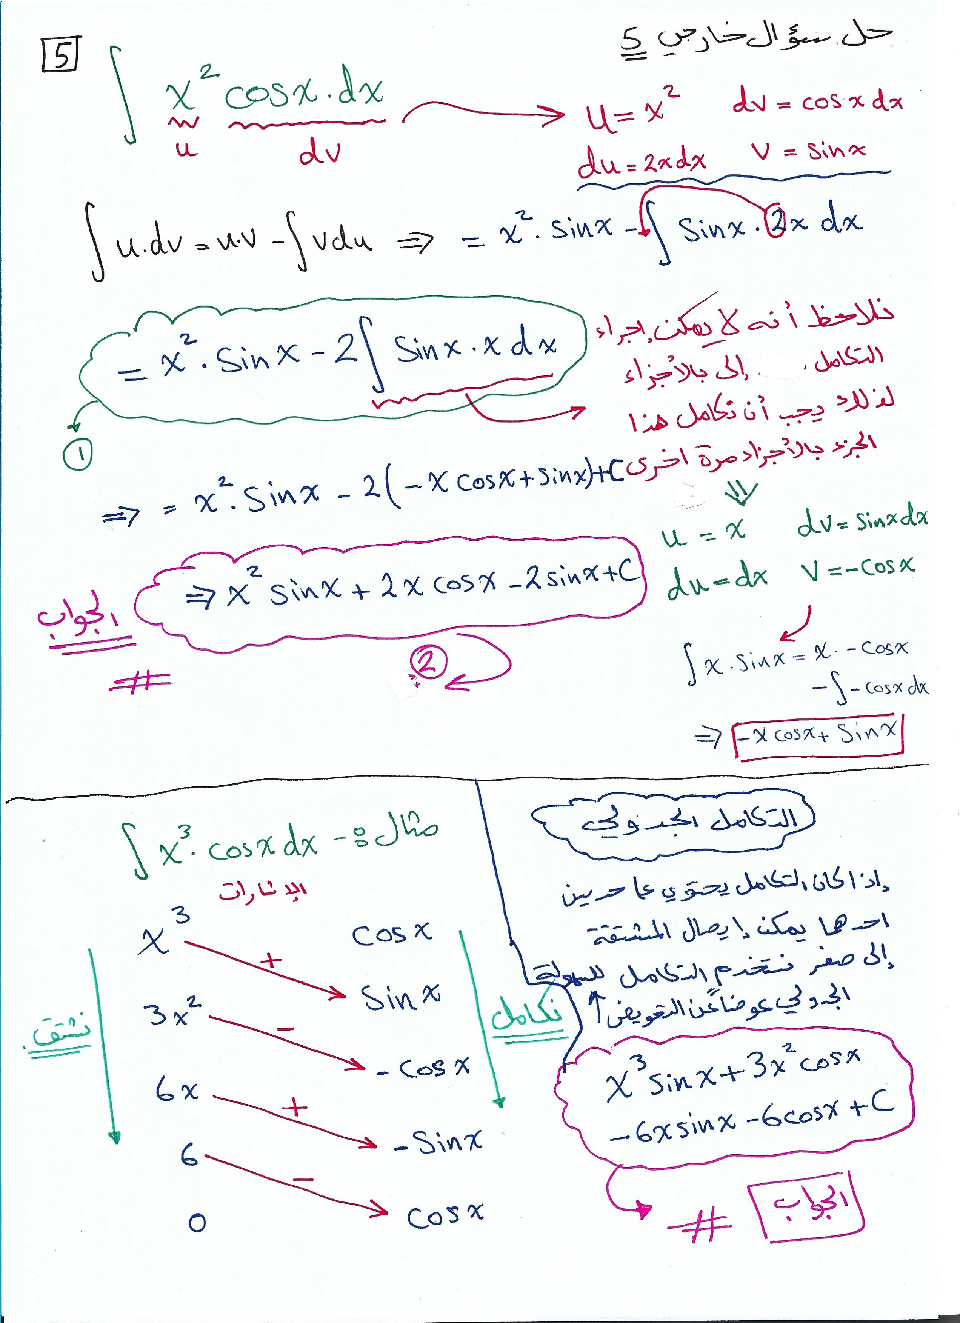 حل سؤال خارجي 5
5
∫ x² cosx.dx
u dv
u = x² dv = cosx dx
du = 2xdx v = sinx
∫u.dv = u.v - ∫vdu ⇒ = x². sinx - ∫ sinx . 2x dx
= x². sinx - 2∫ sinx . x dx
1
نلاحظ أنه لا يمكن إجراء
التكامل إلى بالأجزاء
لذلك يجب أن نكامل هذا
الجزء بالأجزاء مرة اخرى
⇒ = x². sinx - 2(-x cosx + sinx)+C
u = x dv = sinxdx
du = dx v = -cosx
⇒ x² sinx + 2x cosx - 2sinx + C
الجواب
#
2
∫x.sinx = x. -cosx
-∫-cosxdx
⇒ -xcosx + sinx
مثال :- ∫x³. cosxdx
الإشارات
x³ cosx
+
3x² sinx
-
6x -cosx
+
6 -sinx
-
0 cosx
نشتق
نكامل
التكامل الجدولي
إذا كان التكامل يحتوي على حدين
احدهما يمكن إيصال المشتقة
إلى صفر نستخدم التكامل للسهولة
الجدولي عوضاً عن التعويض ↑
x³sinx + 3x²cosx
-6xsinx - 6cosx + C
# الجواب